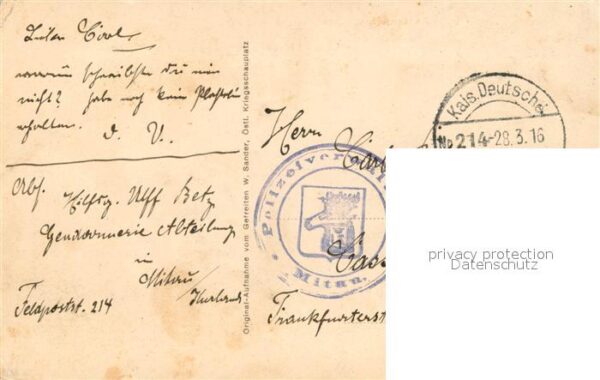 Lieber Carl,
warum schreibste du mir
nicht? habe noch kein
erhalten.
D. V.
Abs.
Hilfsg. Uff Betz
Gendarmerie Abteilung
in
Mitau
/Kurland
Feldpostst. 214
Original-Aufnahme vom Gefreiten W. Sander, Östl. Kriegsschauplatz
Herrn
Kais. Deutsche
No 214-28.3.16
Polizeiver
Mitau.
Cass
Frankfurterst
privacy protection
Datenschutz